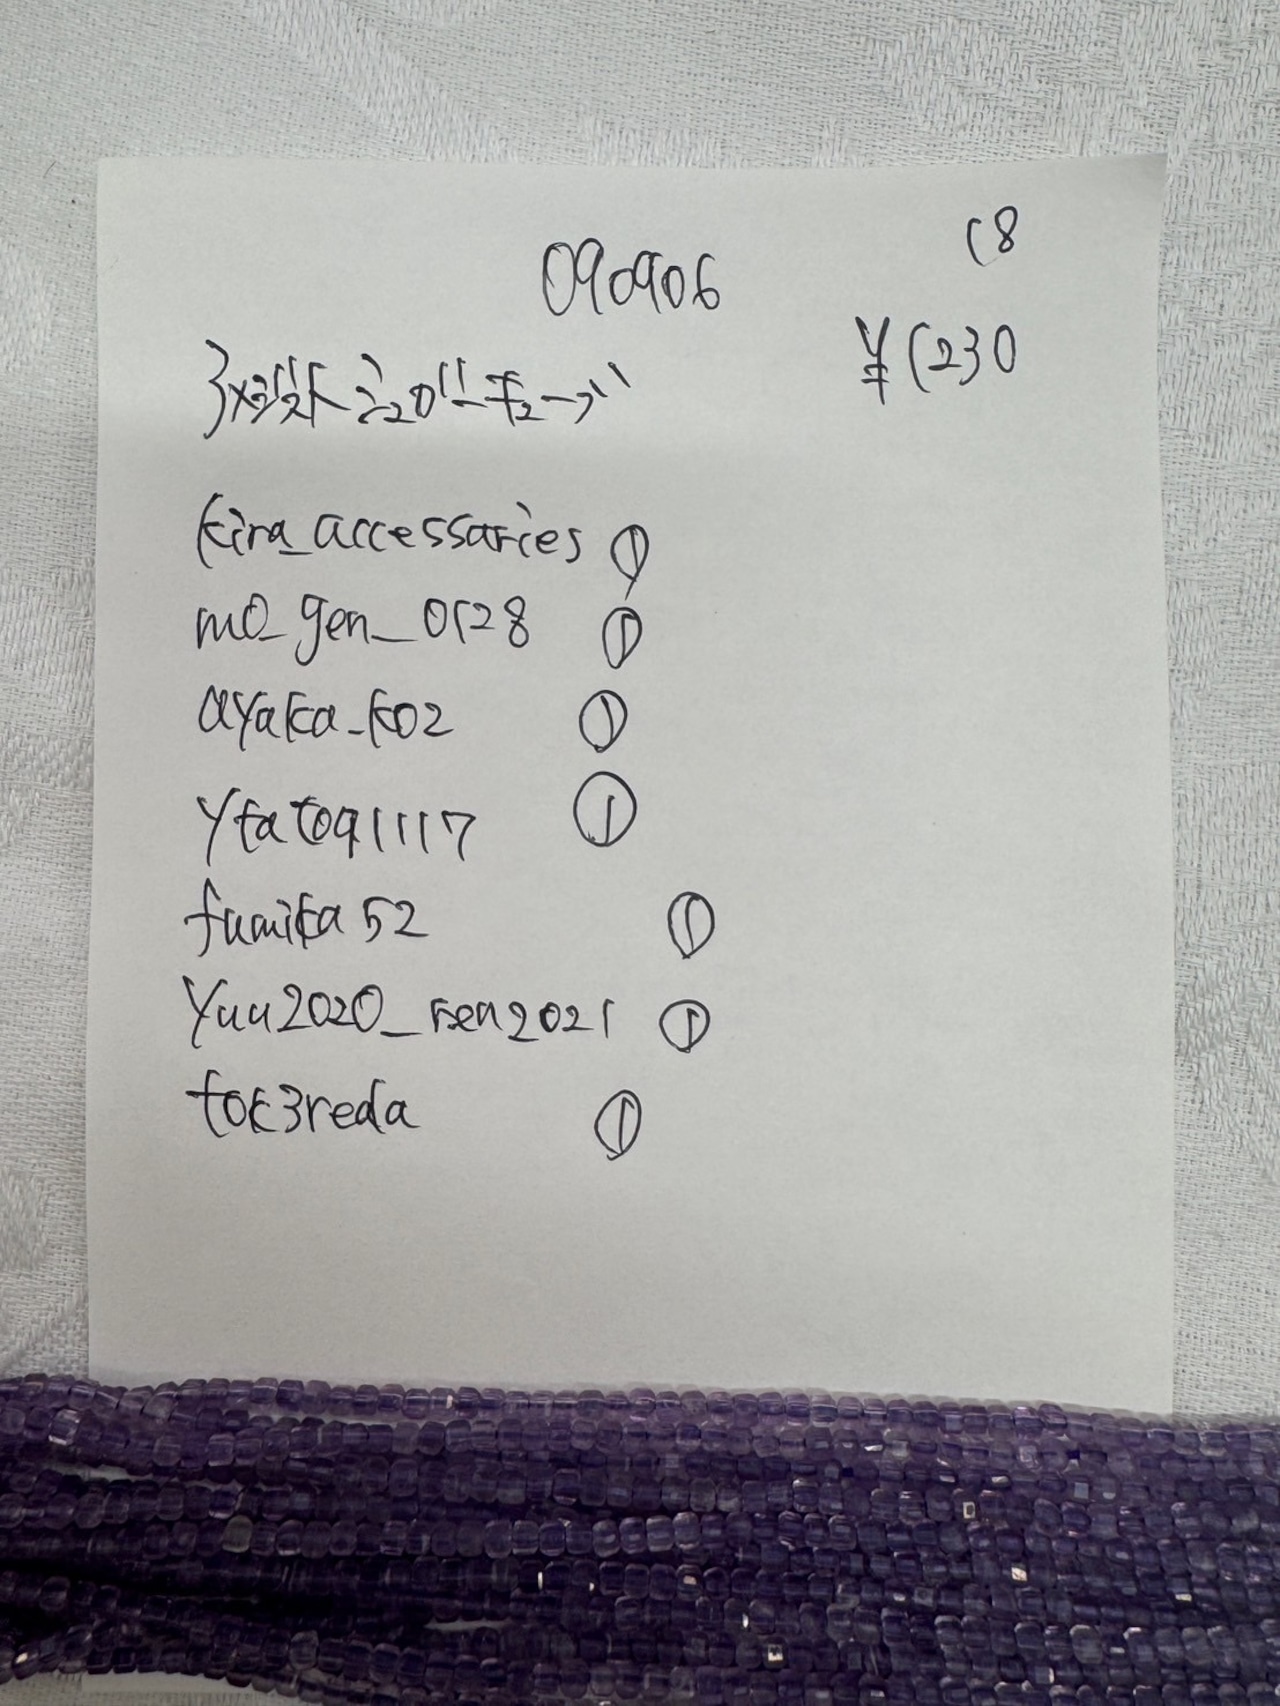 090906
18
¥1230
kira_accessaries ①
mo_gen_0128 ①
ayaka_k02 ①
ytatoq1117 ①
fumika52 ①
yuu2020_ren2021 ①
tok3reda ①